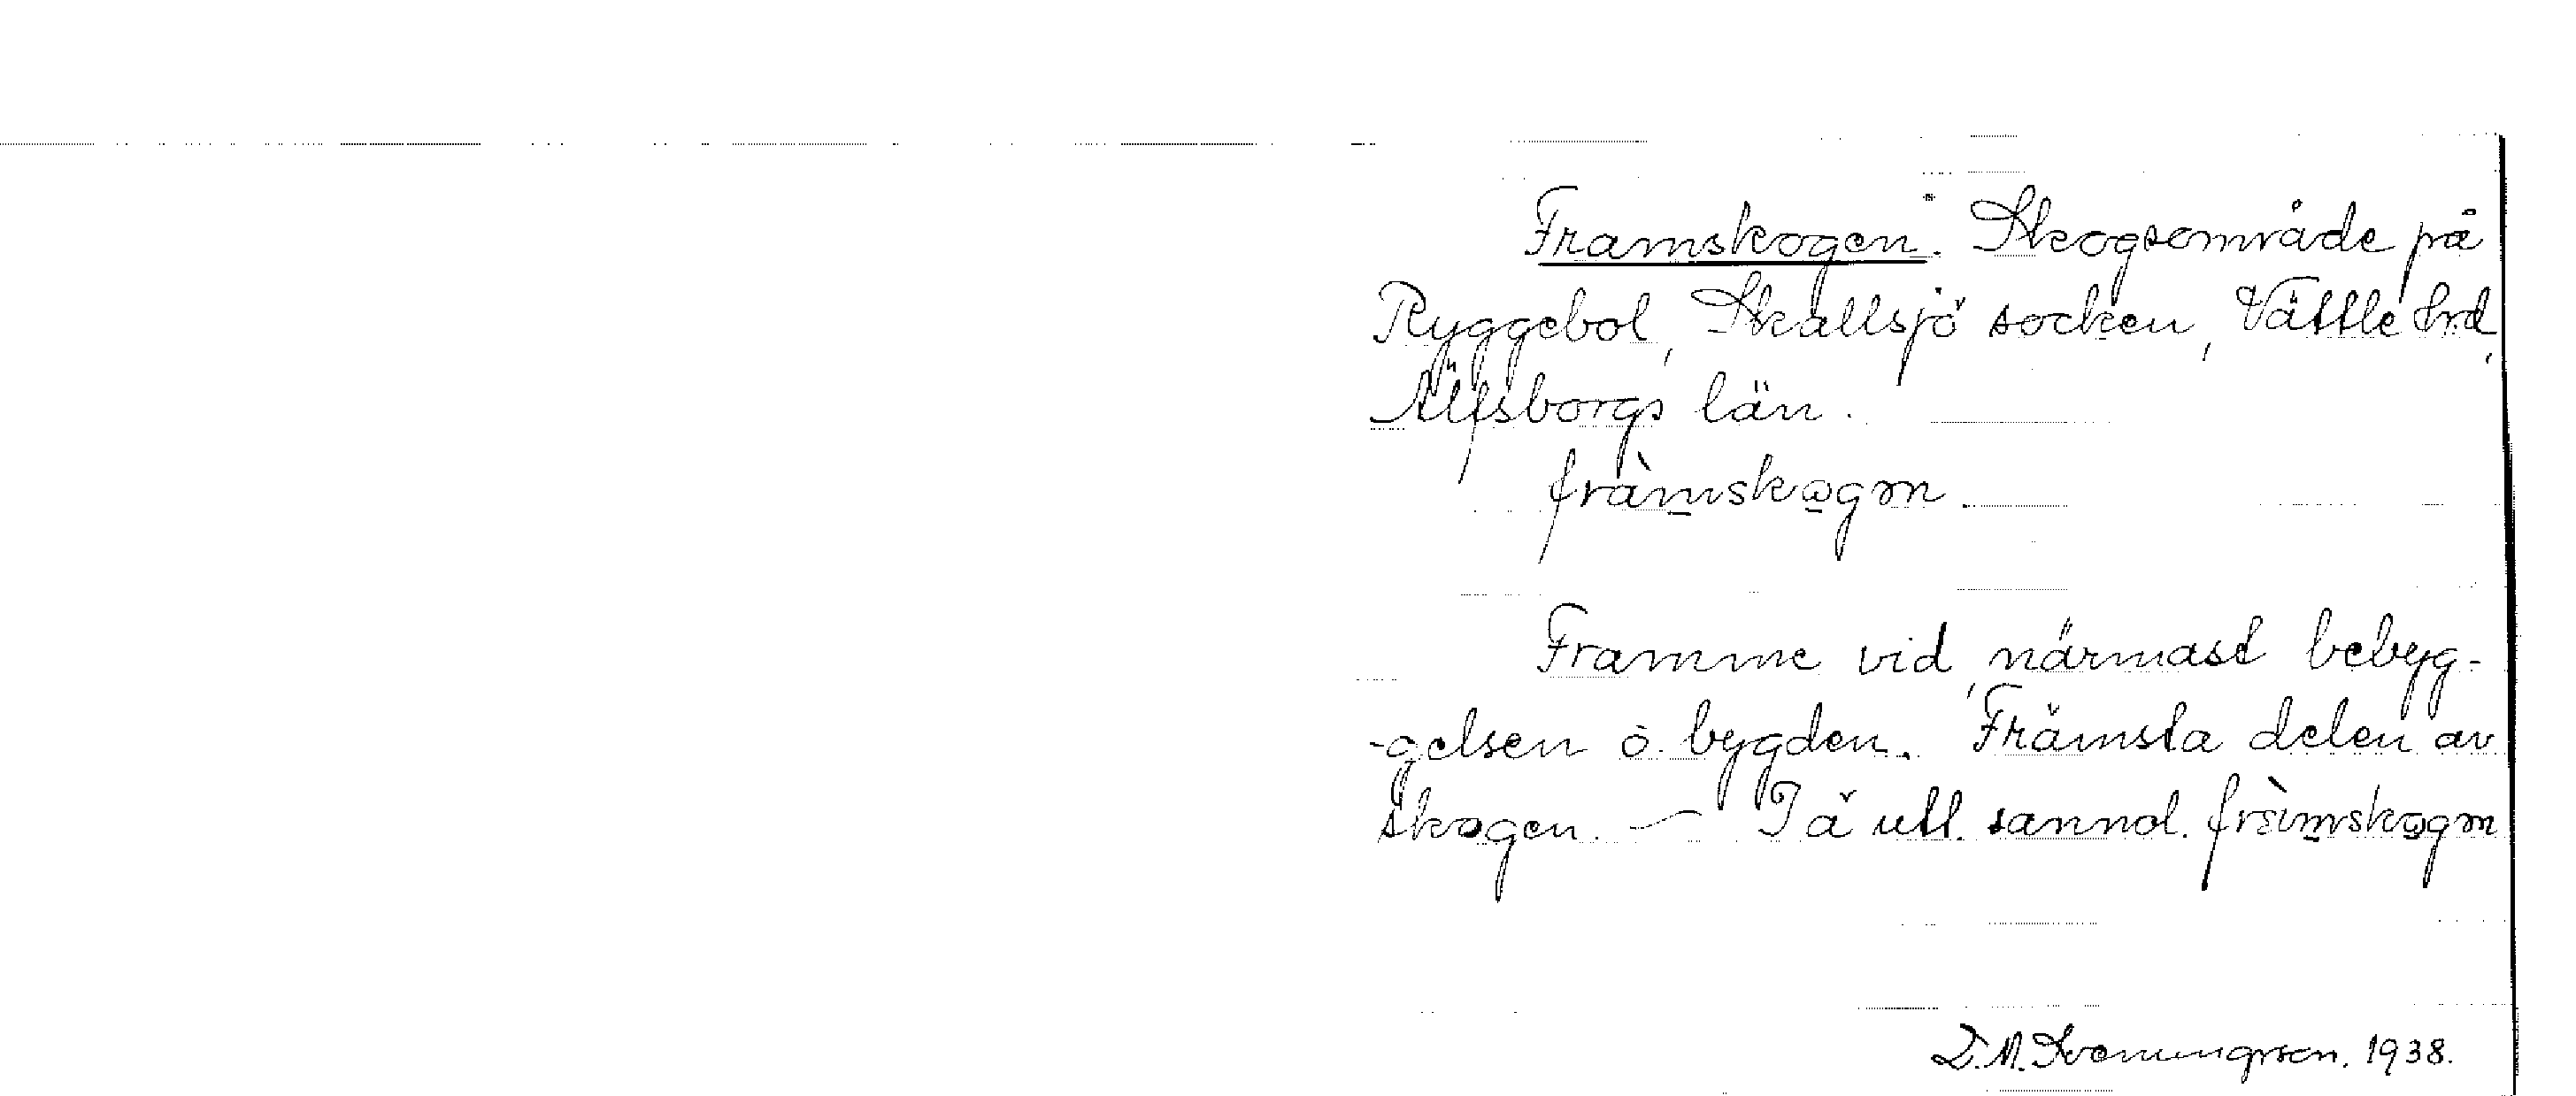 Framskogen. Skogsområde på
Ryggebol, Skallsjö socken, Vättle hrd,
Älfsborgs län.
fràmskogən.
Framme vid, närmast bebyg-
-gelsen o. bygden. Främsta delen av
skogen. — Iä utt. sannol. frä̀mskogən
1938.